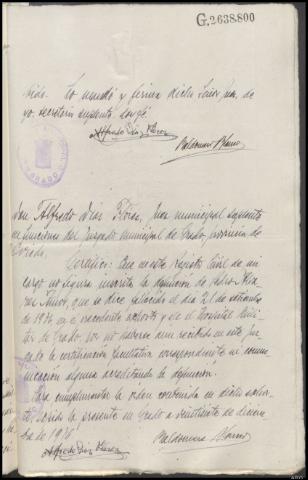 G.2638.800
nido. Lo mandó y firma dicho Señor, de
yo, secretario suplente, doy fé
Alfredo Díaz Flórez
Baldomero Blanco
Don Alfredo Díaz Flórez, Juez municipal suplente
en funciones del Juzgado municipal de Grado, provincia de
Oviedo.
Certifico: Que en este Registro Civil de mi
cargo no figura inscrita la defunción de Pedro
que se dice fallecido el día 21 de octubre
de 193 en el Hospital Mili
tar de Grado, por no haberse aun recibido en este Juz
gado la certificación facultativa correspondiente ni comu
nicación alguna acreditando la defunción.
Para cumplimentar lo orden contenida en dicho exhor
to, expido la presente en Grado a veintisiete de diciem
bre de 193
Alfredo Díaz Flórez
Baldomero Blanco